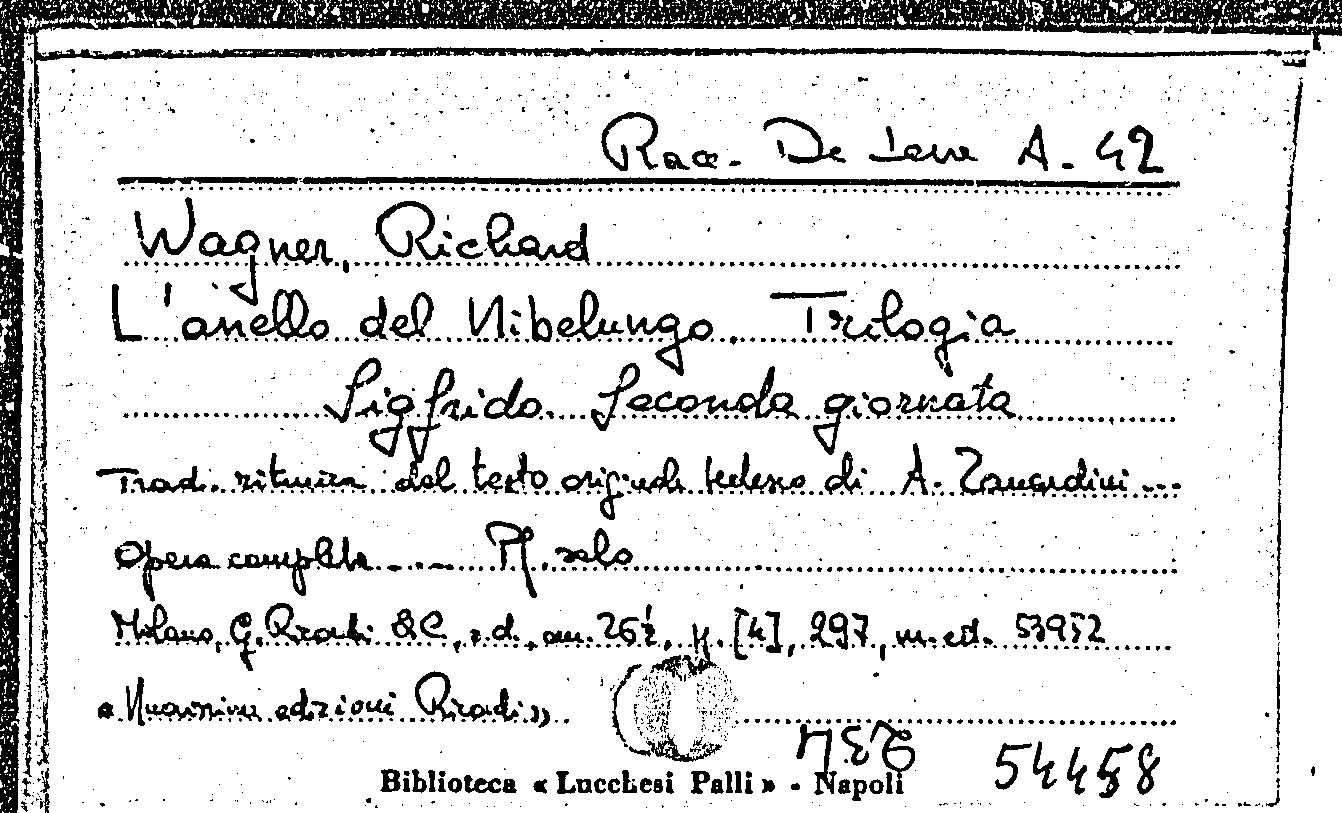 Racc. De Leva A. 42
Wagner, Richard
L'anello del Nibelungo. Trilogia
Sigfrido. Seconda giornata
Trad. ritmica dal testo originale tedesco di A. Zanardini ...
Opera completa .... Pf. solo
Milano, G. Ricordi & C., s.d., cm. 26½, pp. [4], 297, n. ed. 53952
« Nuovissime edizioni Ricordi »
54458
Biblioteca « Lucchesi Palli » - Napoli